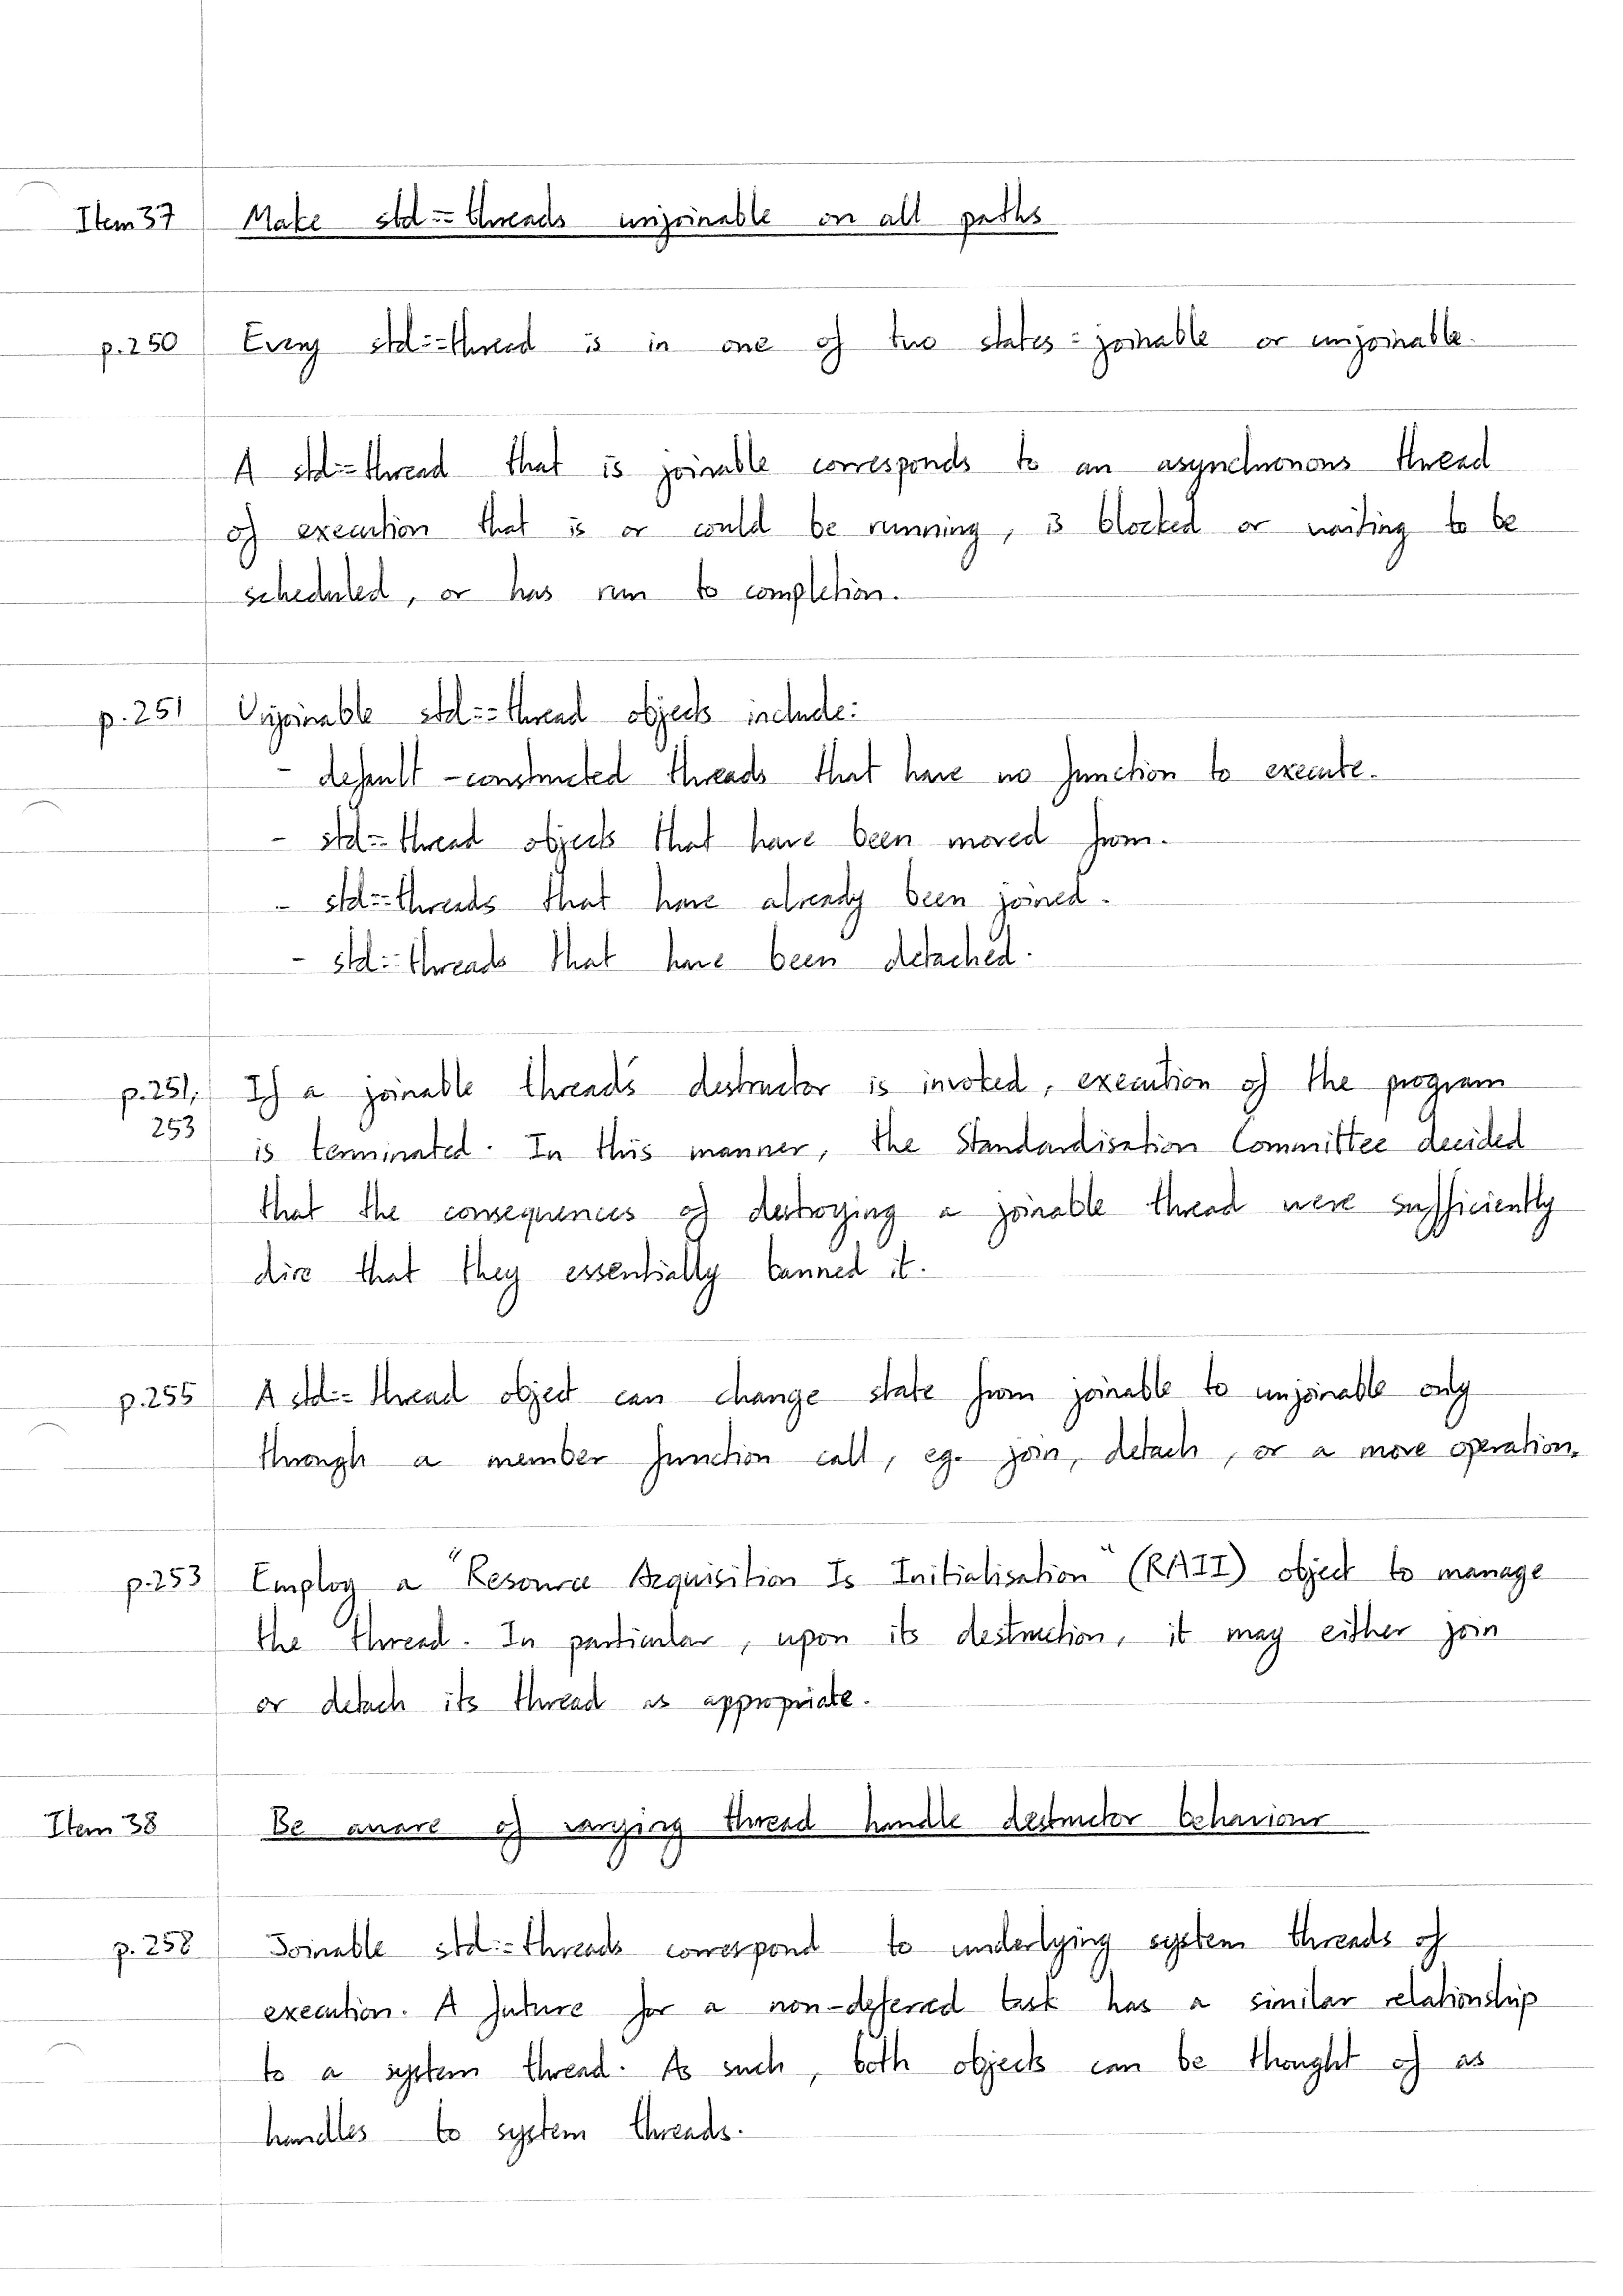 Item 37 Make std::threads unjoinable on all paths
p.250 Every std::thread is in one of two states: joinable or unjoinable.
A std::thread that is joinable corresponds to an asynchronous thread
of execution that is or could be running, is blocked or waiting to be
scheduled, or has run to completion.
p.251 Unjoinable std::thread objects include:
- default-constructed threads that have no function to execute.
- std::thread objects that have been moved from.
- std::threads that have already been joined.
- std::threads that have been detached.
p.251, If a joinable thread's destructor is invoked, execution of the program
253 is terminated. In this manner, the Standardisation Committee decided
that the consequences of destroying a joinable thread were sufficiently
dire that they essentially banned it.
p.255 A std::thread object can change state from joinable to unjoinable only
through a member function call, eg. join, detach, or a move operation.
p.253 Employ a "Resource Acquisition Is Initialisation" (RAII) object to manage
the thread. In particular, upon its destruction, it may either join
or detach its thread as appropriate.
Item 38 Be aware of varying thread handle destructor behaviour
p.258 Joinable std::threads correspond to underlying system threads of
execution. A future for a non-deferred task has a similar relationship
to a system thread. As such, both objects can be thought of as
handles to system threads.